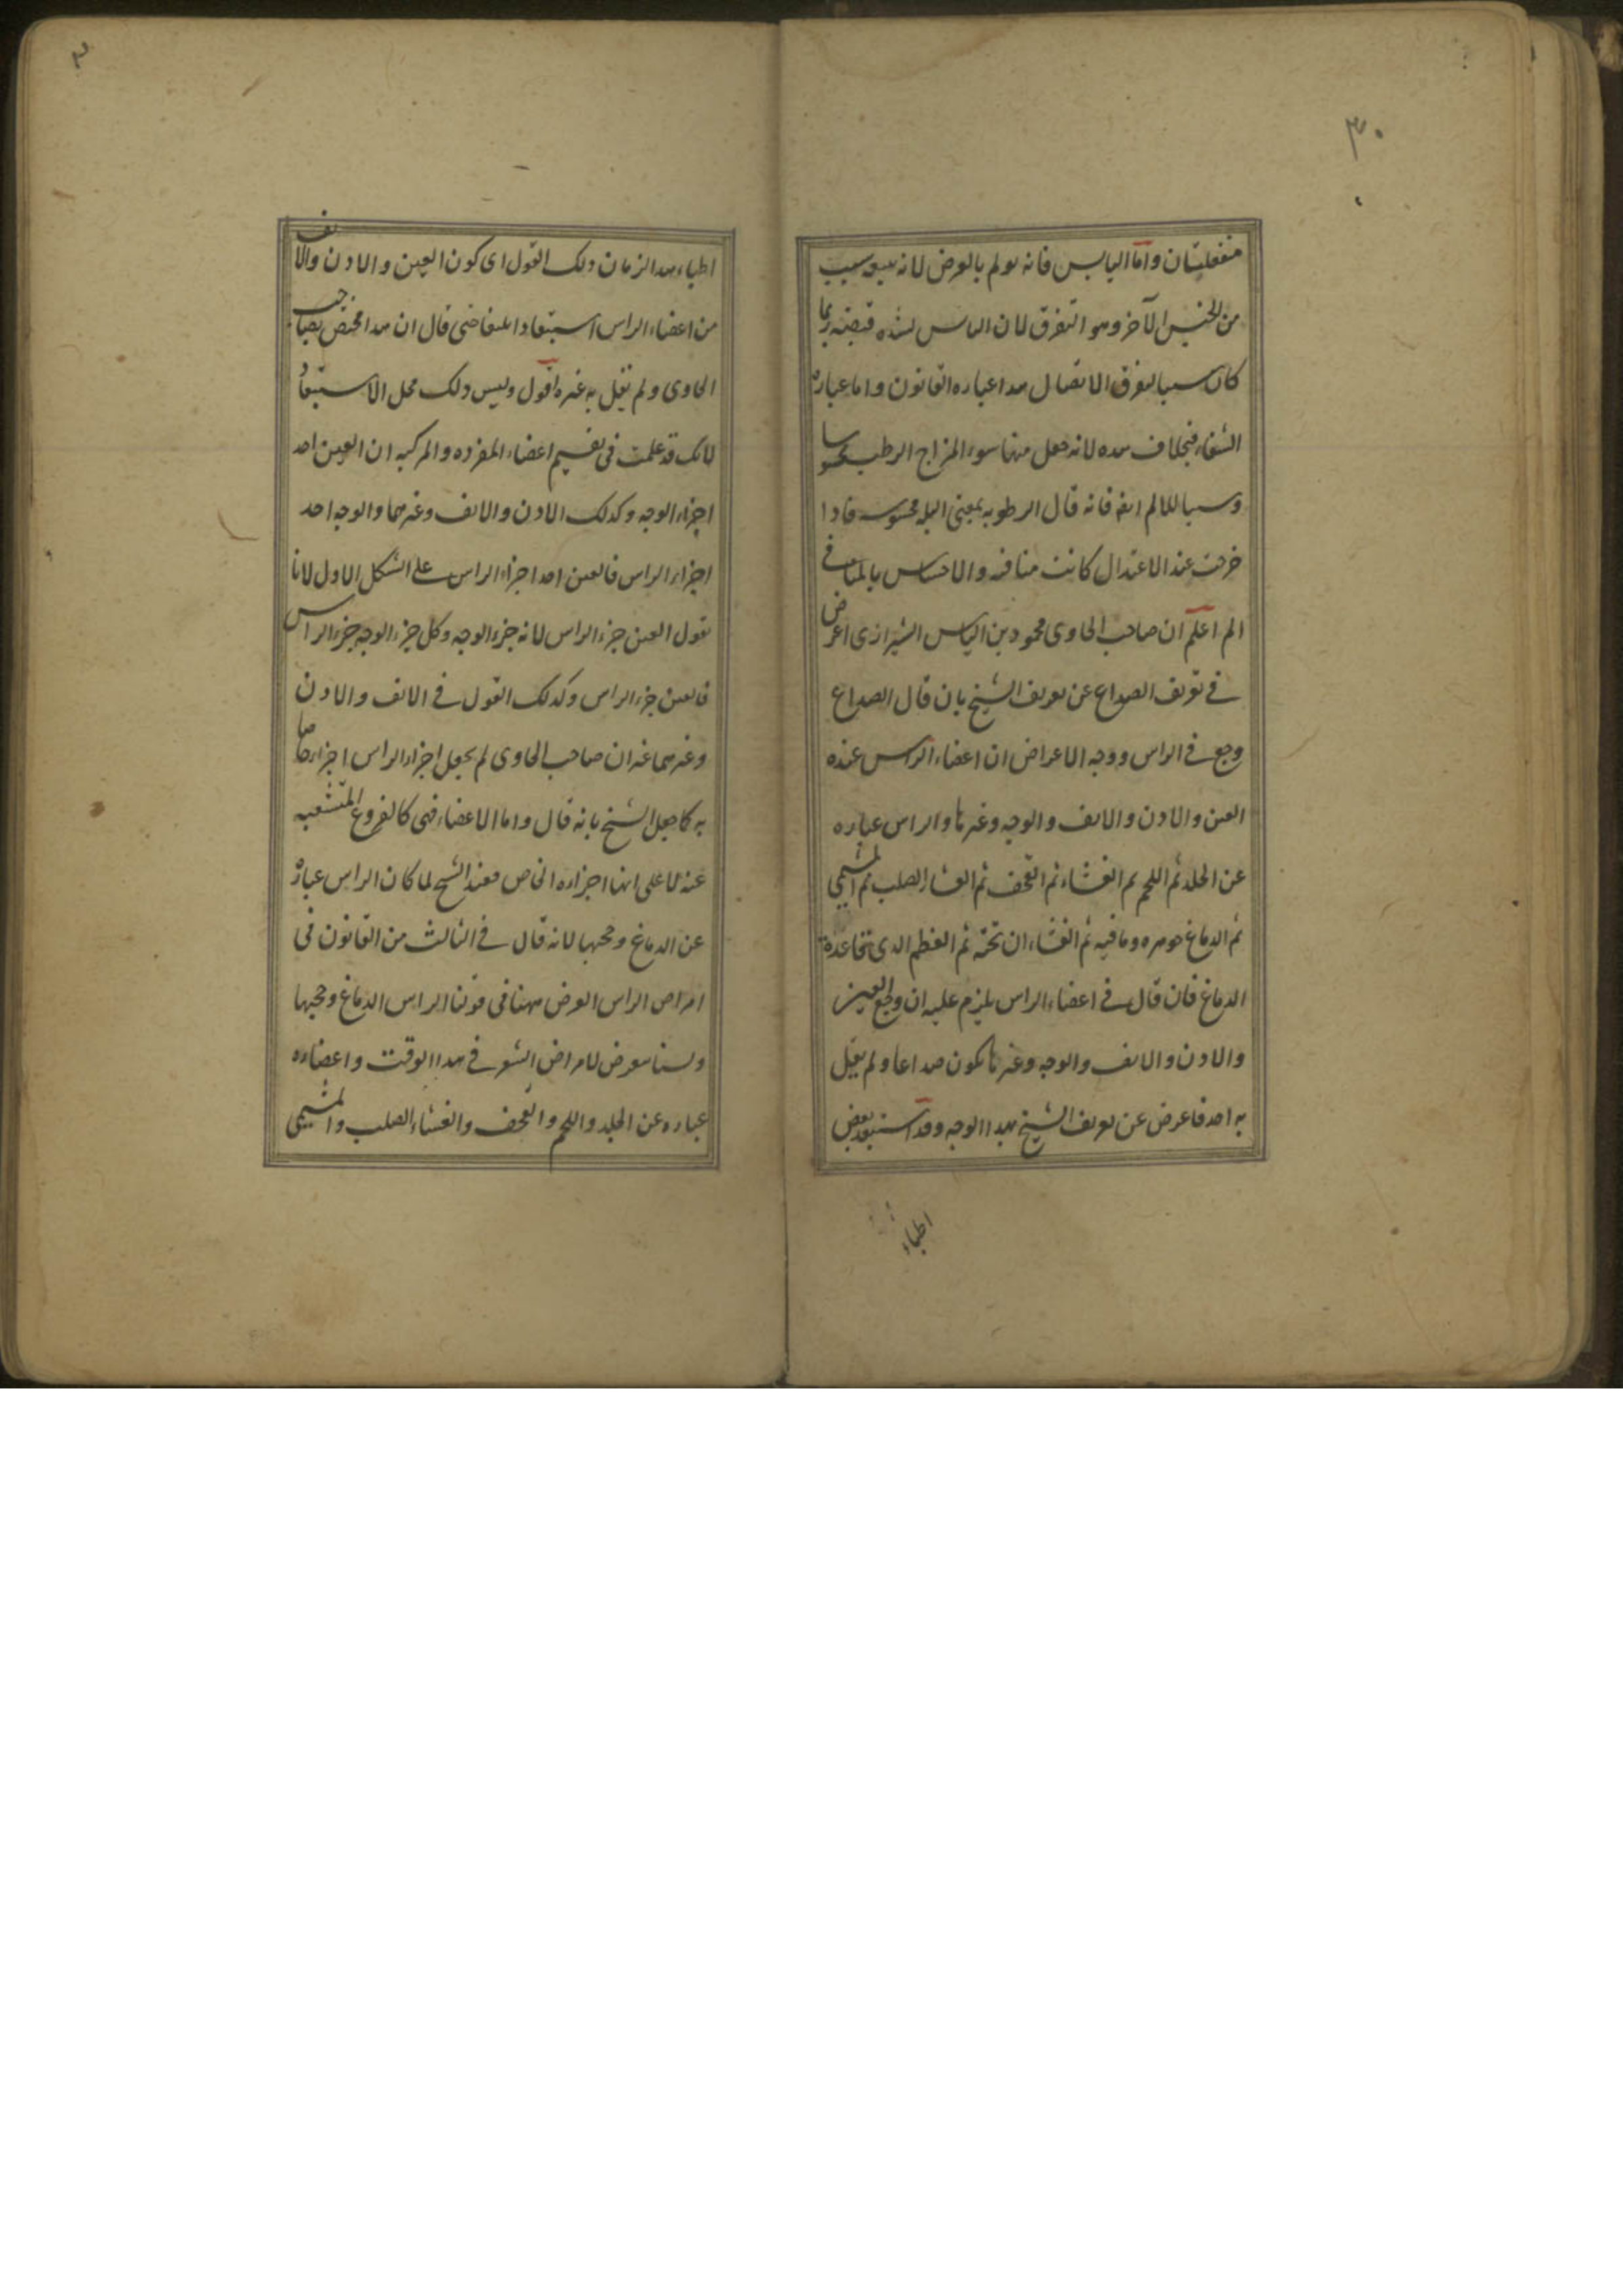 ٣٠
منفعلتان واما اليابس فانه يولم بالعرض لانه يتبعه سبب
من الجنس الآخر وهو التفرق لان اليابس لشده قبضه ربما
كان سببا لتفرق الاتصال هدا عباره القانون واما عبارة
الشفاء فبخلاف هده لانه جعل منها سوء المزاج الرطب محسوسا
وسببا للالم ايضا فانه قال الرطوبه بمعنى البله محسوسه فادا
خرجت عند الاعتدال كانت منافره والاحساس بالمنافى
الم اعلم ان صاحب الحاوى محمود بن الياس الشيرازى اعرض
فى تعريف الصداع عن تعريف الشيخ بان قال الصداع
وجع فى الراس ووجه الاعراض ان اعضاء الراس عنده
العين والادن والانف والوجه وغيرها والراس عباره
عن الجلد ثم اللحم ثم الغشاء ثم القحف ثم الغشاء الصلب ثم المشيمى
ثم الدماغ جوهره وما فيه ثم الغشاء ان تحته ثم العظم الدى تحت قاعدة
الدماغ فان قال فى اعضاء الراس يلزم عليه ان وجع العين
والادن والانف والوجه وغيرها يكون صداعا ولم يقل
به احد فاعرض عن تعريف الشيخ بهدا الوجه وقد استبعد بعض
اطباء
٣
اطباء هدا الزمان دلك القول اى كون العين والادن والانف
من اعضاء الراس استبعادا بليغا حتى قال ان هدا مختص بصاحب
الحاوى ولم يقل به غيره اقول وليس دلك محل الاستبعاد
لانك قد علمت فى تقسيم اعضاء المفرده والمركبه ان العين احد
اجزاء الوجه وكدلك الادن والانف وغيرهما والوجه احد
اجزاء الراس فالعين احد اجزاء الراس على الشكل الاول لانا
نقول العين جزء الراس لانه جزء الوجه وكل جزء الوجه جزء الراس
فالعين جزء الراس وكدلك القول فى الانف والادن
وغيرهما غير ان صاحب الحاوى لم يجعل اجزاء الراس اجزاء خاصا
به كما جعل الشيخ بانه قال واما الاعضاء فهى كالفروع المتشعبه
عنه لا على انها اجزاءه الخاص فعند الشيخ لما كان الراس عبارة
عن الدماغ وحجبها لانه قال فى الثالث من القانون فى
امراض الراس الغرض ههنا فى قولنا الراس الدماغ وحجبها
ولسنا نتعرض لامراض الشعر فى هدا الوقت واعضاءه
عباره عن الجلد واللحم والقحف والغشاء الصلب والمشيمى